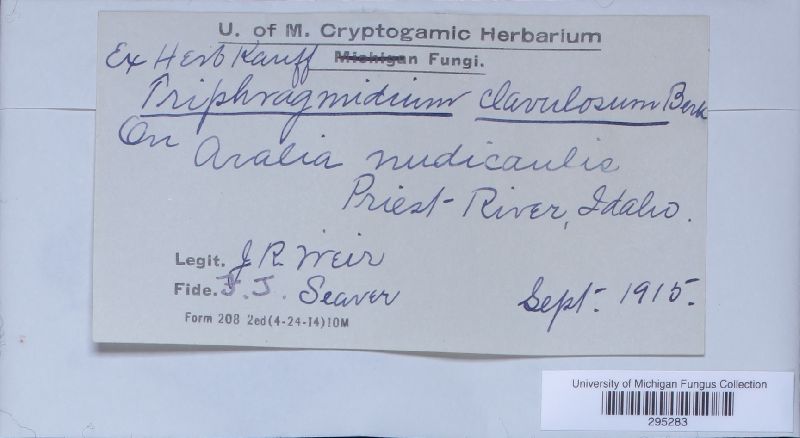 U. of M. Cryptogamic Herbarium
Ex Herb Kauff Michigan Fungi.
Triphragmidium clavulosum Berk
On Aralia nudicaulis
Priest River, Idaho.
Legit. J R Weir
Fide. F. J. Seaver
Sept. 1915.
Form 208 2ed(4-24-14)10M
University of Michigan Fungus Collection
295283